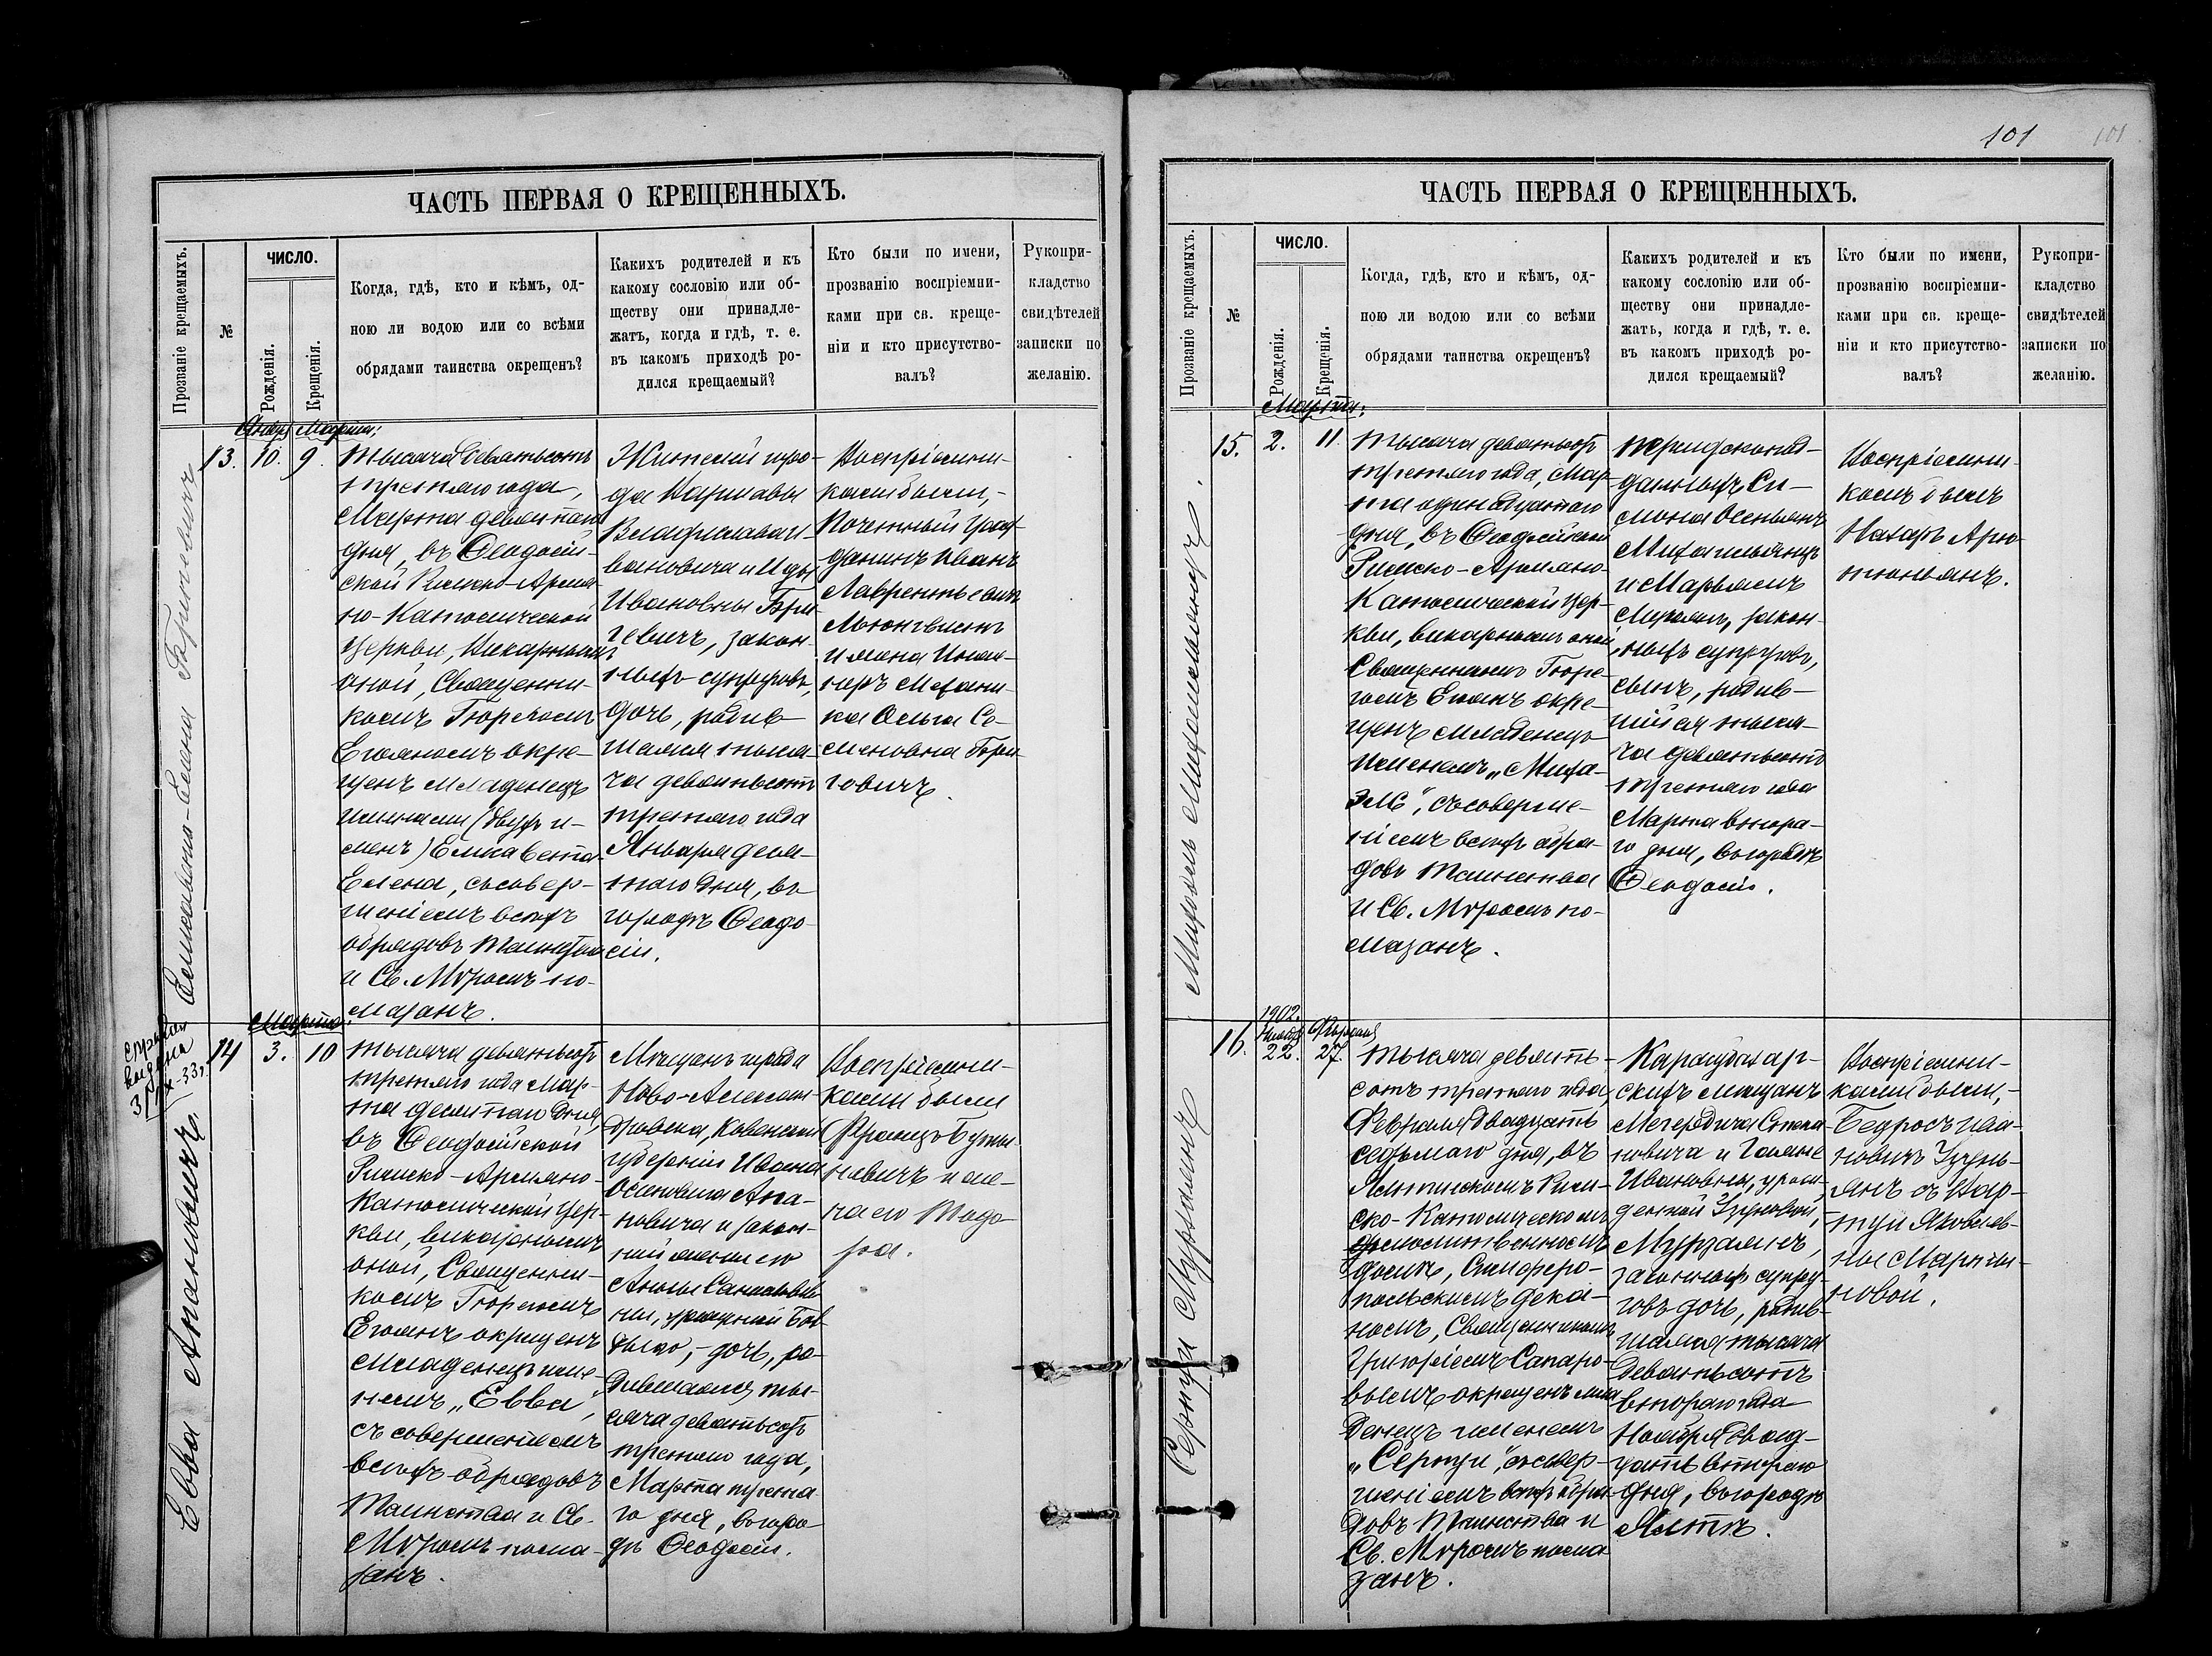 101
101
ЧАСТЬ ПЕРВАЯ О КРЕЩЕННЫХЪ.
Прозваніе крещаемыхъ.
№
ЧИСЛО.
Рожденія.
Крещенія.
Когда, гдѣ, кто и кѣмъ, од-
ною ли водою или со всѣми
обрядами таинства окрещенъ?
Какихъ родителей и къ
какому сословію или об-
ществу они принадле-
жатъ, когда и гдѣ, т. е.
въ какомъ приходѣ ро-
дился крещаемый?
Кто были по имени,
прозванію воспріемни-
ками при св. креще-
ніи и кто присутство-
валъ?
Рукопри-
кладство
свидѣтелей
записки по
желанію.
Елисавета-Елена
Январ Марта:
13. 10. 9
Тысяча девятьсотъ
третяго года,
Марта девятаго
дня, въ Ѳеодосій-
ской Римско-Армя-
но-Католической
Церкви, Викарнымъ
оной, Священни-
комъ Георгіемъ
окре-
щенъ младенецъ
именами (двухъ и-
менъ) Елисавета
Елена, съ совер-
шеніемъ всѣхъ
обрядовъ Таинства
и Св. Мѵромъ по-
мазанъ.
Жителей горо-
да Варшавы
Владиславаи-
вановича и Иды
Ивановны
закон-
ныхъ супруговъ,
дочь, родив-
шаяся тыся-
ча девятьсотъ
третяго года
Января деся-
таго дня, въ
городѣ Ѳеодо-
сіи.
Воспріемни-
ками были,-
Почетный граж-
данинъ Иванъ
Лаврентьевичъ
и жена
Ольга Се-
меновна
Ева Анановичъ
14
Марта:
3. 10
Тысяча девятьсотъ
третяго года Мар-
та десятаго дня,
въ Ѳеодосійской
Римско-Армяно-
Католической Цер-
кви, викарнымъ
оной, Священни-
комъ Георгіемъ
окрещенъ
младенецъ име-
немъ „Евва",
съ совершеніемъ
всѣхъ обрядовъ
Таинства и Св.
Мѵромъ пома-
занъ.
Мѣщанъ города
Ново-Алексан-
дровска, Ковенской
губерніи Ивана
Осиповича Ана-
новича и закон-
ной жены его
Анны
ны, урожденной
дочь, ро-
дившаяся ты-
сяча девятьсотъ
третяго года,
Марта третя-
го дня, въ горо-
дѣ Ѳеодосіи.
Воспріемни-
ками были
Францъ
и же-
на его
ЧАСТЬ ПЕРВАЯ О КРЕЩЕННЫХЪ.
Прозваніе крещаемыхъ.
№
ЧИСЛО.
Рожденія.
Крещенія.
Когда, гдѣ, кто и кѣмъ, од-
ною ли водою или со всѣми
обрядами таинства окрещенъ?
Какихъ родителей и къ
какому сословію или об-
ществу они принадле-
жатъ, когда и гдѣ, т. е.
въ какомъ приходѣ ро-
дился крещаемый?
Кто были по имени,
прозванію воспріемни-
ками при св. креще-
ніи и кто присутство-
валъ?
Рукопри-
кладство
свидѣтелей
записки по
желанію.
Марта:
15. 2. 11.
Тысяча девятьсотъ
третяго года, Мар-
та одинадцатаго
дня, въ Ѳеодосійской
Римско-Армяно-
Католической Цер-
кви, викарнымъ оной,
Священникомъ Геор-
гіемъ окре-
щенъ младенецъ
именемъ „Миха-
эль", съ соверше-
ніемъ всѣхъ обря-
довъ Таинства
и Св. Мѵромъ по-
мазанъ.
Персидскопод-
данныхъ Си-
мона
и Марьямъ
закон-
ныхъ супруговъ,
сынъ, родив-
шійся тыся-
ча девятьсотъ
третяго года
Марта втора-
го дня, въ городѣ
Ѳеодосіи.
Воспріемни-
комъ былъ
Назаръ Арю-
тюньянъ.
Серпуи Мурзаянъ
1902.
Ноября Февраля
16. 22. 27.
Тысяча девять-
сотъ третяго года,
Февраля двадцать
седьмаго дня, въ
Ялтинскомъ Рим-
ско-Католическомъ
домѣ, Симферо-
польскимъ дека-
номъ, Священникомъ
Григоріемъ Сапаро-
вымъ окрещенъ мла
денецъ именемъ
„Серпуи", съ совер-
шеніемъ всѣхъ обря-
довъ Таинства и
Св. Мѵромъ пома
занъ.
Карасубазар-
скихъ мѣщанъ
Мегердича Степа-
новича и
Ивановны, урож-
денной
Мурзаянъ,
законныхъ супру-
говъ дочь, родив-
шаяся тысяча
девятьсотъ
втораго года
Ноября двад-
цать втораго
дня, въ городѣ
Ялтѣ.
Воспріемни-
ками были,-
Бедросъ Ива-
новичъ
янъ
Яковлев-
ны Марты-
новой.